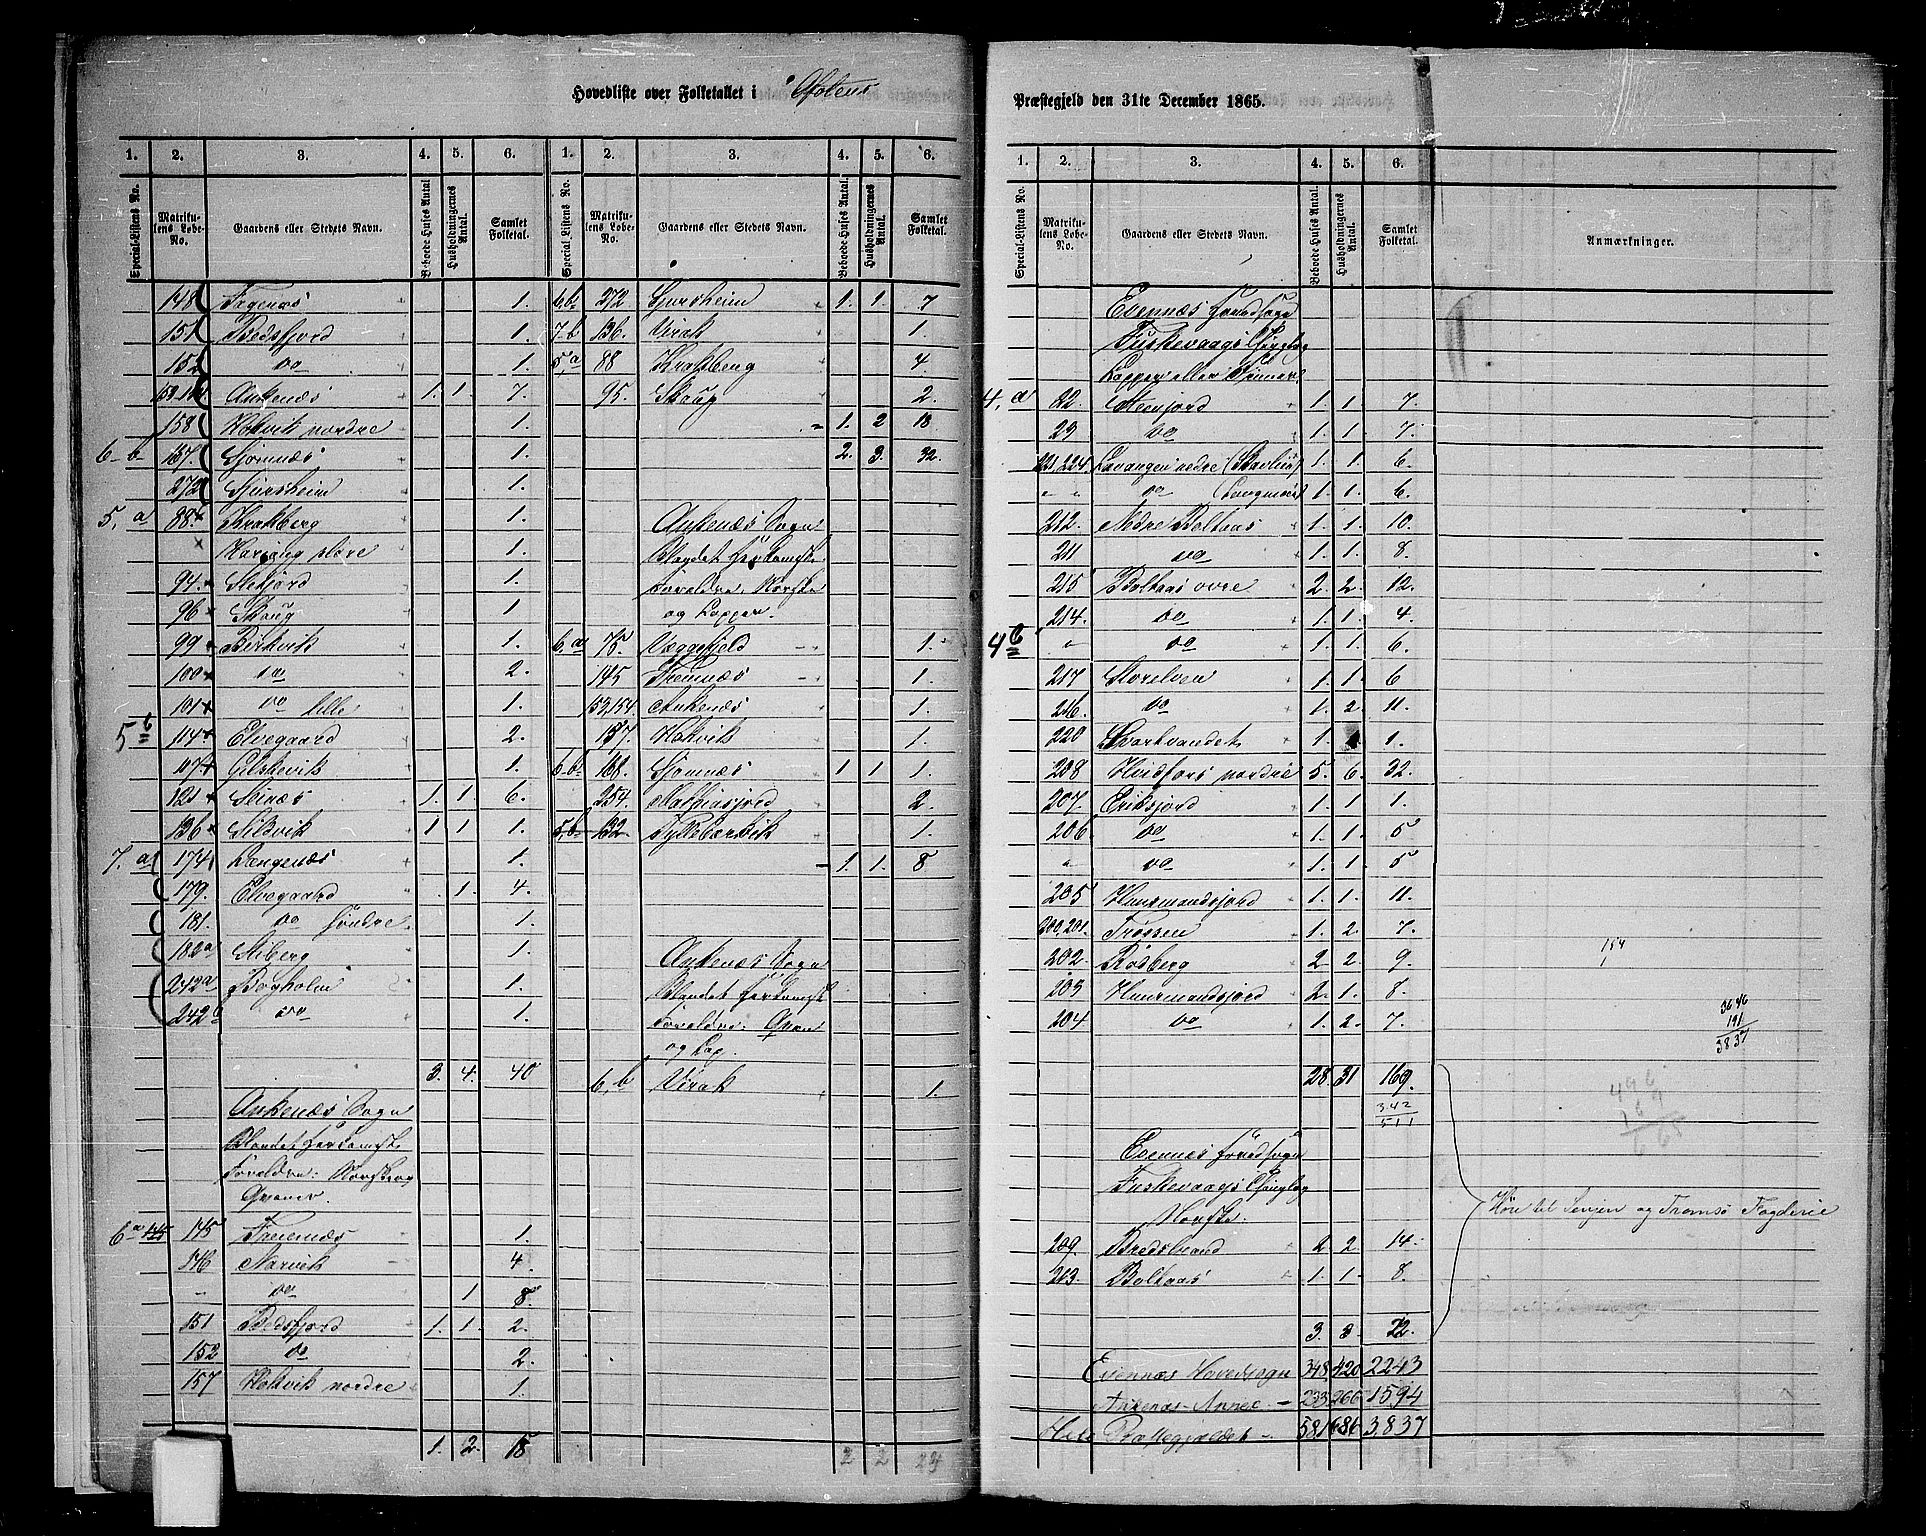 Hovedliste over Folketallet i Ofotens
Præstegjeld den 31te December 1865.
1. 2. 3. 4. 5. 6. 1. 2. 3. 4. 5. 6.
Special-Listens No. Matrikulens Løbe-No. Gaardens eller Stedets Navn. Beboede Huses Antal Husholdningernes Antal. Samlet Folketal. Special-Listens No. Matrikulens Løbe-No. Gaardens eller Stedets Navn. Beboede Huses Antal. Husholdningernes Antal. Samlet Folketal.
148 Fagenæs 1.
151 Bedsfjord 1.
152 do 1.
153,154 Ankenæs 1. 1. 7.
158 Hokvik nordre 1.
6-b 137. Sjomnæs 1.
272 Sjursheim 1.
5, a 88 Krakberg 1.
Harjang store 1.
94. Stefjord 1.
96 Skoug 1
99 Birkvik 1.
100 do 2.
101 do lille 1.
5 b 114 Elvegaard 2.
107 Gilskevik 1.
121 Seinæs 1. 1. 6.
136 Sildvik 1 1 1.
7. a 174 Længenæs 1.
179. Elvegaard 1. 4.
181. do søndre 1.
182a Stiberg 1.
242a Bogholm 1.
242b do 1.
3. 4. 40
Ankenæs Sogn
Blandet Herkomst
Forældre: Norske og
Qvæner.
6a 145 Fremnæs 1.
146 Narvik 4.
- do 1 8.
151 Bedsfjord 1. 1. 2.
152 do 2.
157 Hokvik nordre 1.
1. 2. 18
6b 272 Sjursheim 1. 1. 7
7-b 136. Virak 1.
5, a 88 Krakberg 4.
95. Skoug 2.
1. 2 18
2. 3. 32.
Ankenæs Sogn
Blandet Herkomst
Forældre, Norske
og Lapper.
6, a 78. Væggefjeld 1.
145 Fremnæs 1.
153,154. Ankenæs 1.
157 Hokvik 1.
6-b 168. Sjomnæs 1 1 1.
254. Mathiasjord 2.
5, b 132 Tyttebærvik 1.
1. 1. 8
Ankenæs Sogn
Blandet Herkomst
Forældre: Qvæn
og Lap.
6, b Virak 1.
2 2 24
1. 2. 3. 4. 5. 6.
Special-Listens No. Matrikulens Løbe-No. Gaardens eller Stedets Navn. Beboede Huses Antal. Husholdningernes Antal. Samlet Folketal. Anmærkninger.
Evennæs Hovedsogn
Fuskevaags Thinglag
Lapper eller Qvæner
4, a 22 Steenjord 1. 1. 7.
29 do 1. 1. 7.
221,224. Lavangen nedre (Stavlius) 1. 1. 6.
" " do 1. 1. 6.
212. Nedre Boltaas 1. 1. 10.
211 do 1. 1. 8.
215 Boltaas øvre 2. 2. 12.
214. do 1. 1. 4.
4 b " do 1. 1. 6.
217 Storelven 1. 1. 6
216. do 1. 2. 11.
220 Svartvandet 1. 1. 1.
208 Hvidfors nordre 5. 6. 32.
207. Eriksjord 1. 1. 1.
206. do 1. 1. 5
" do 1. 1. 5
205 Hansmandsjord 1. 1. 11.
200,201 Trossen 1. 2. 7.
202 Rosberg 2 2. 9.
203 Hansmandsjord 2. 1. 8.
204 do 1. 2. 7.
154
1
3646
191
3837
28 31 169.
342
511
496
169
665
Evennæs Hovedsogn
Fuskevaags Thinglag
Norske.
Høre til Senjen og Tromsø Fogderie
209. Bredstrand 2. 2. 14.
213. Boltaas 1. 1. 8.
3. 3. 22.
Evennæs Hovedsogn 348 420 2243
Ankenæs Annex - 233 266 1594
Hele Præstegjældet - 581 686 3837